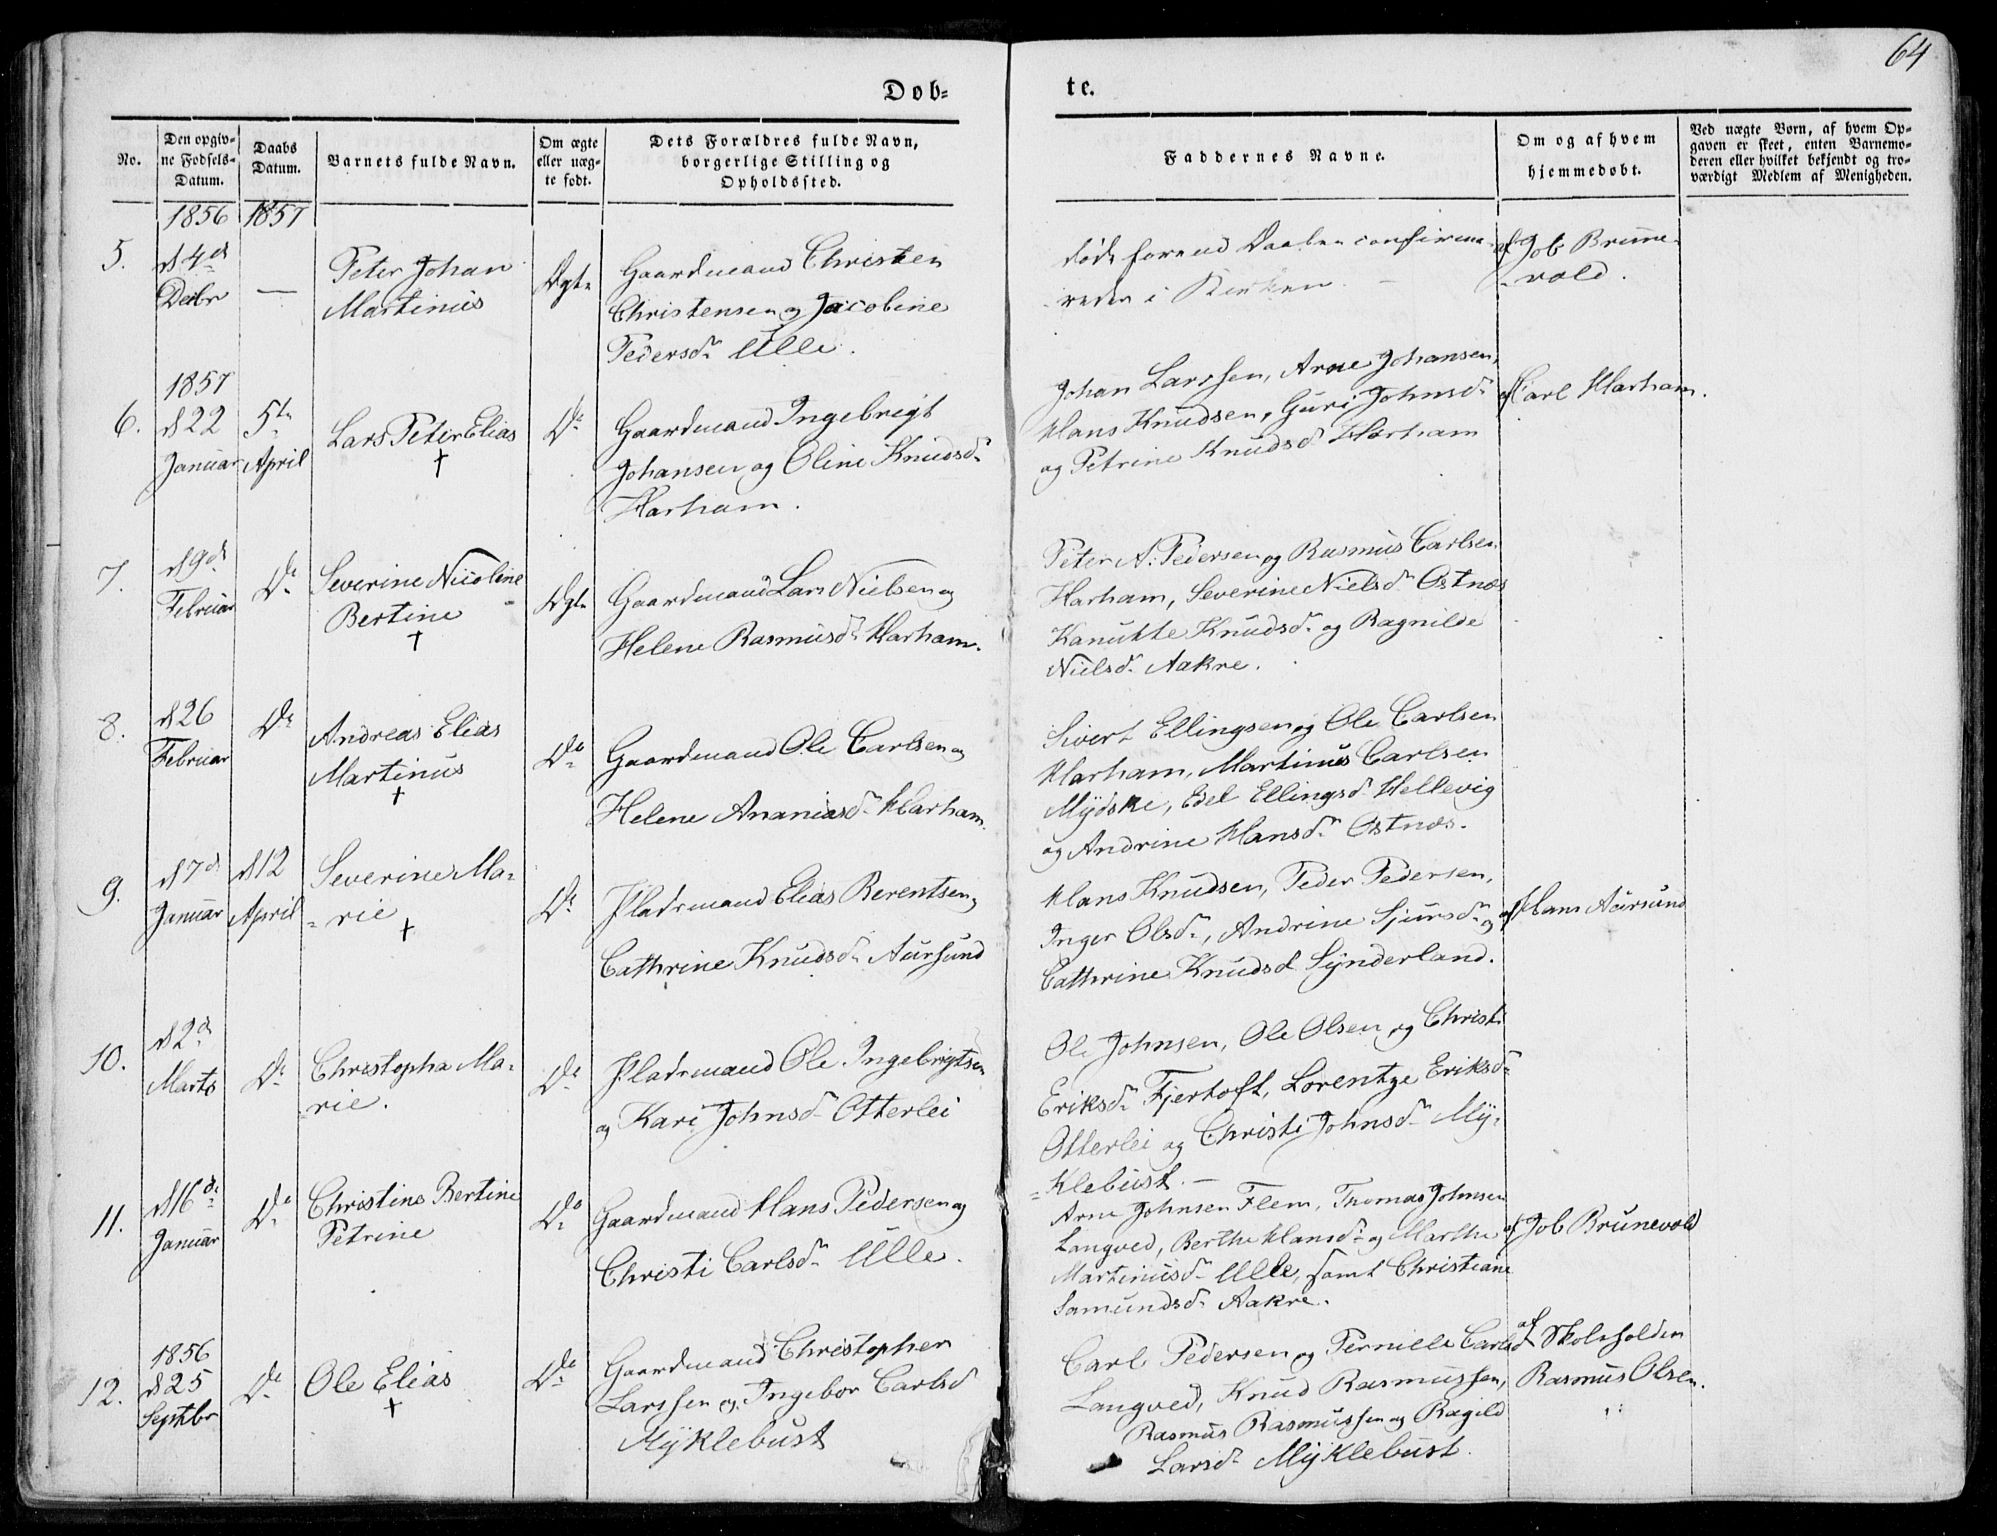 64
Døb=
te.
No.
Den opgiv=
ne Fødsels=
Datum.
Daabs
Datum.
Barnets fulde Navn.
Om ægte
eller uæg=
te født.
Dets Forældres fulde Navn,
borgerlige Stilling og
Opholdssted.
Faddernes Navne.
Om og af hvem
hjemmedøbt.
Ved uægte Børn, af hvem Op=
gaven er skeet, enten Barnemo=
deren eller hvilket bekjendt og tro=
værdigt Medlem af Menigheden.
1856 1857
5.
d 4de
Decbr
—
Peter Johan
Martinus
Ægte
Gaardmand Christen
Christensen og Jacobine
Pedersd. Ulle.
døde forend Daaben confirme-
redes i Kirken. —
af Job Brune-
-vold.
1857
6.
d 22
Januar
5te
April
Lars Peter Elias
†
Do
Gaardmand Ingebrigt
Johansen og Oline Knudsd.
Harham.
Johan Larssen, Arne Johansen,
Hans Knudsen, Guri Johnsd.
og Petrine Knudsd Harham
af Carl Harham.
7.
d 9de
Februar
Do
Severine Nicoline
Bertine
†
Ægte
Gaardmand Lars Nielsen og
Helene Rasmusd. Harham.
Peter A. Pedersen og Rasmus Carlsen
Harham, Severine Nielsd. Ostnæs
Kanutte Knudsd. og Ragnilde
Nielsd. Aakre.
8.
d 26
Februar
Do
Andreas Elias
Martinus
†
Do
Gaardmand Ole Carlsen og
Helene Ananiasd. Harham.
Sivert Ellingsen og Ole Carlsen
Harham, Martinus Carlsen
Mÿdske, Edel Ellingsd. Hellevig
og Andrine Hansd. Ostnæs.
9.
d 7de
Januar
d 12
April
Severine Ma-
-rie
†
Do
Pladsmand Elias Berentsen og
Cathrine Knudsd. Aursund
Hans Knudsen, Peder Pedersen,
Inger Olsd., Andrine Sjursd. og
Cathrine Knudsd Sÿnderland.
af Hans Aursund
10.
d 2de
Marts
Do
Christopha Ma-
-rie.
Do
Pladsmand Ole Ingebrigtsen
og Kari Johnsd. Otterlei
Ole Johnsen, Ole Olsen og Christi
Eriksd. Fjertoft, Lorentze Eriksd.
Otterlei og Christi Johnsd. Mÿ-
-klebust. —
11.
d 16de
Januar
Do
Christine Bertine
Petrine
Do
Gaardmand Hans Pedersen og
Christi Carlsd. Ulle.
Arne Johnsen Flem, Thomas Johnsen
Langved, Berthe Hansd. og Marthe
Martinusd. Ulle, samt Christiane
Samundsd. Aakre.
af Job Brunevold
1856
12.
d 25
Septbr
Do
Ole Elias
†
Do
Gaardmand Christopher
Larssen og Ingebor Carlsd
Mÿklebust
Carl Pedersen og Pernille Carlsd
Langved, Knud Rasmussen,
Rasmus Rasmussen og Ragild
Larsd. Mÿklebust.
af Skoleholder
Rasmus Olsen.